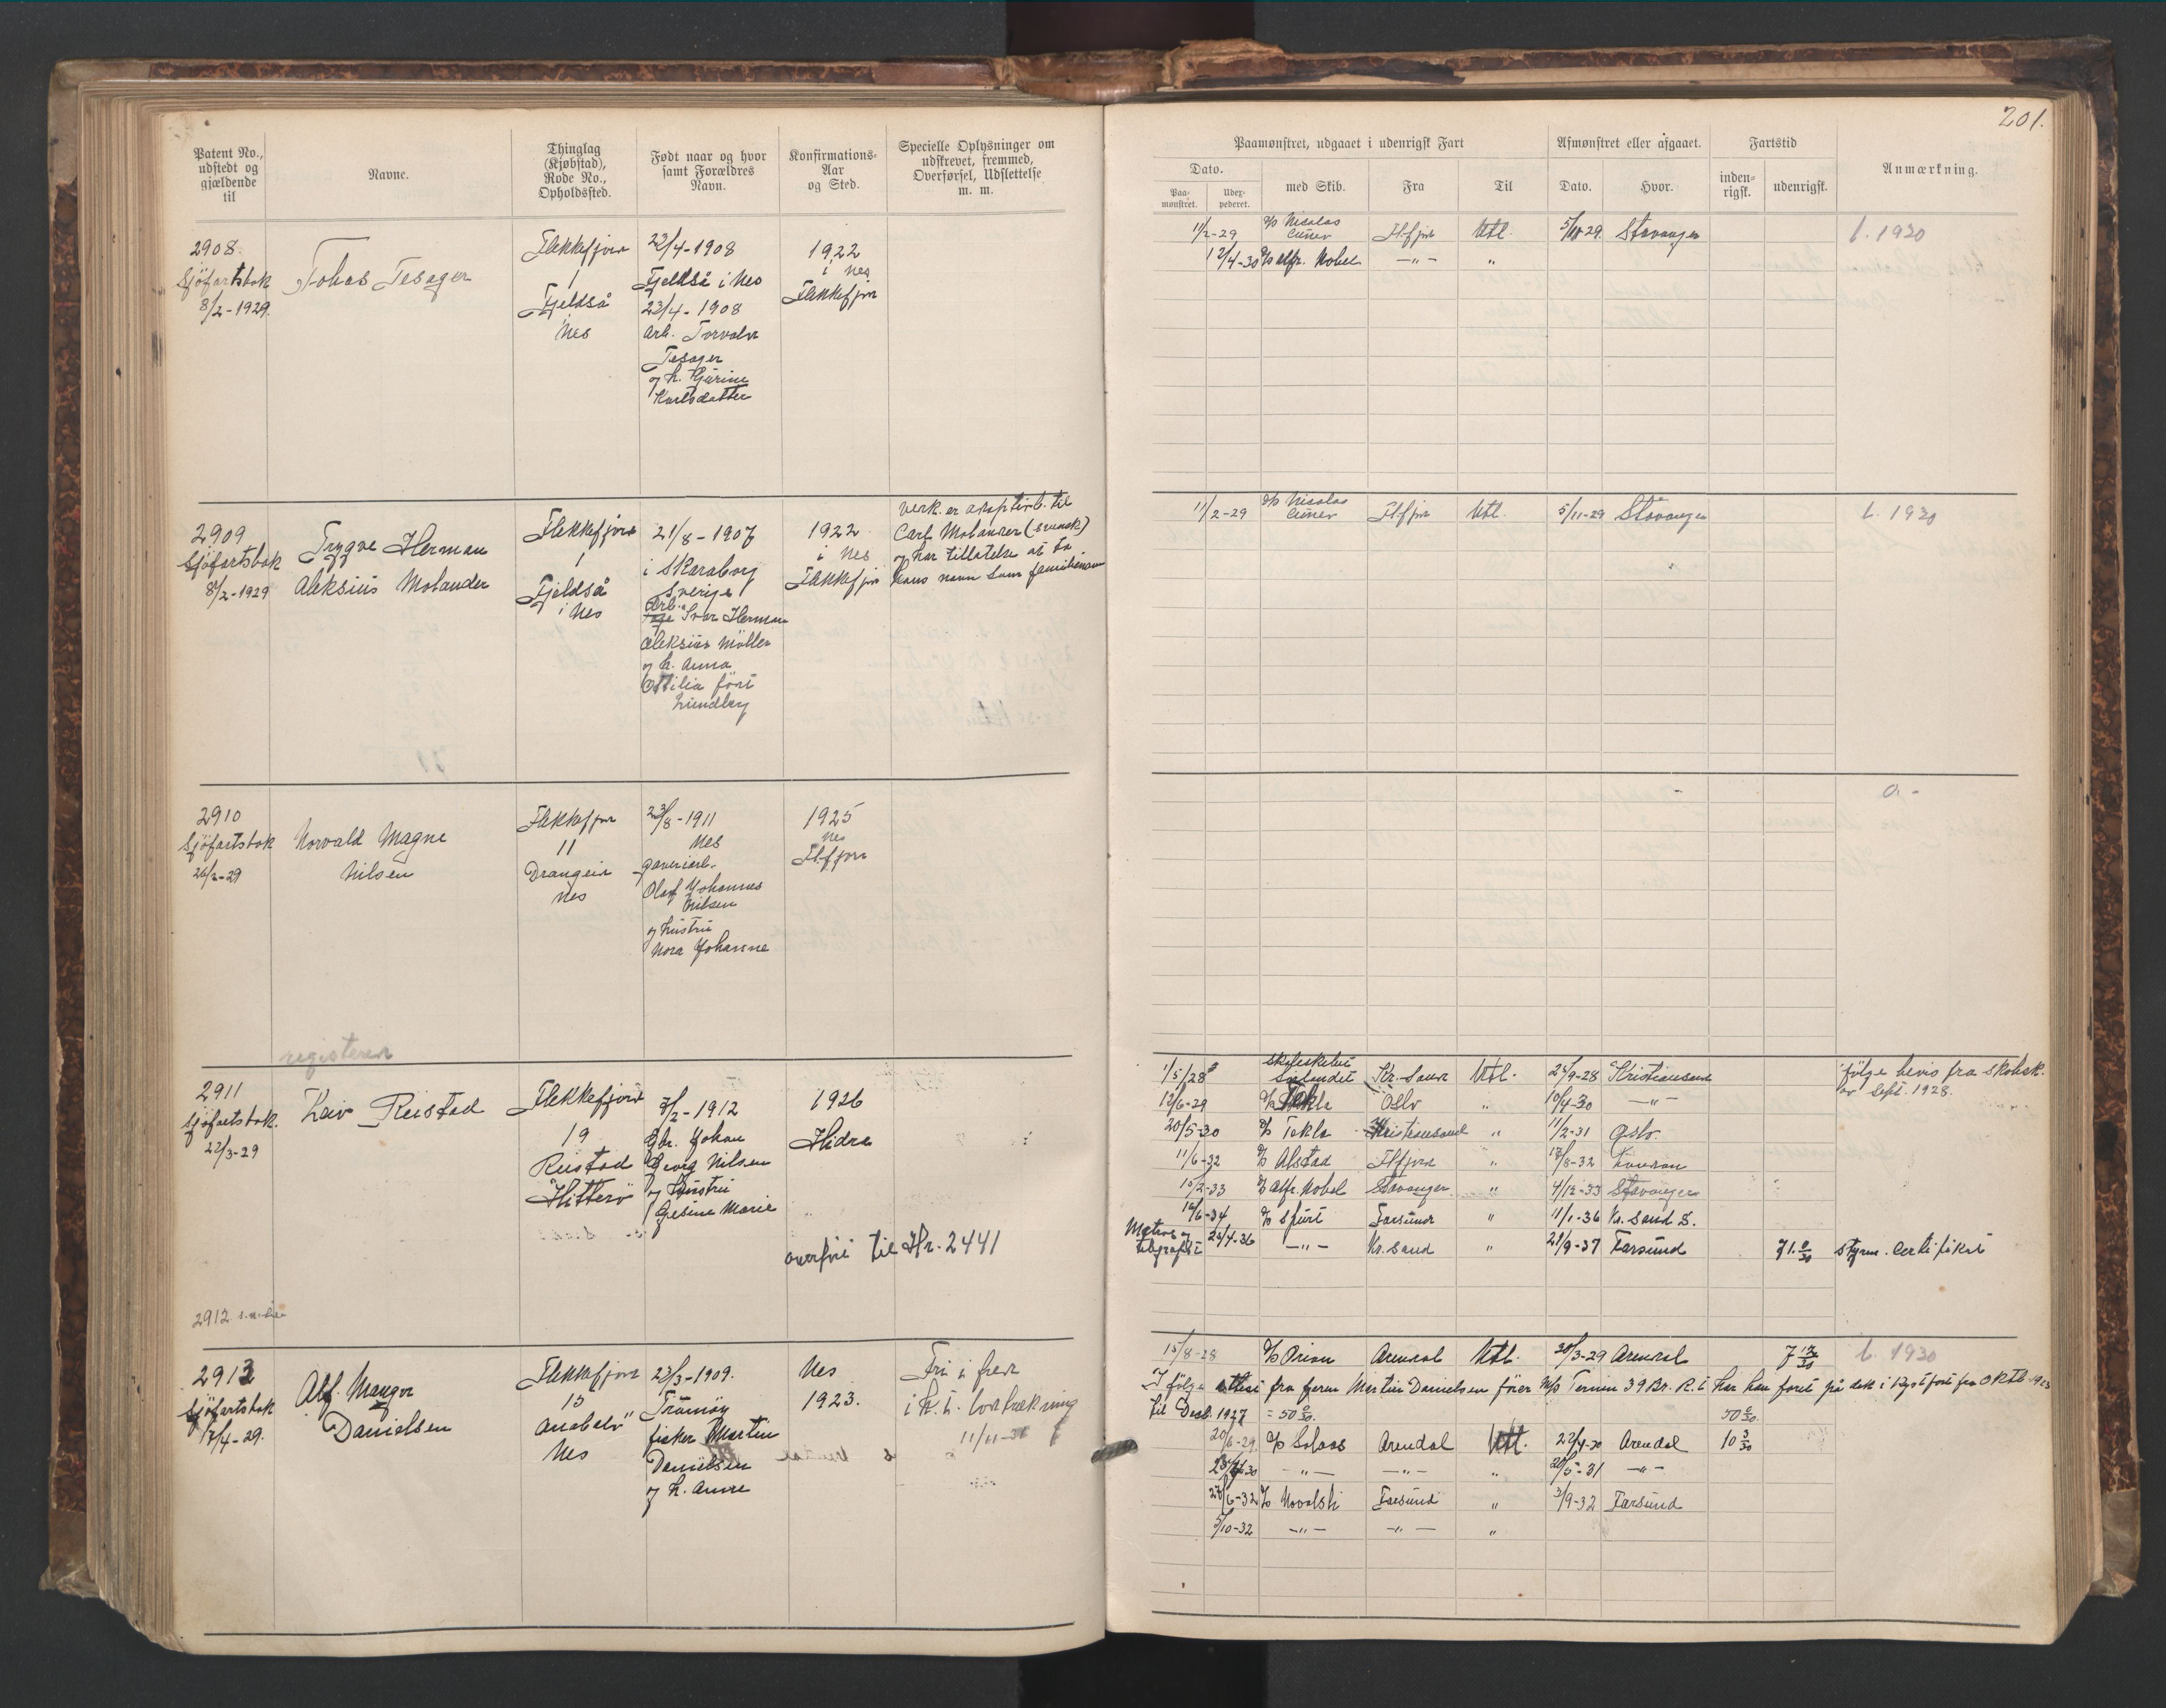 201.
Patent No.,
udstedt og
gjældende
til
Navne.
Thinglag
(Kjøbstad),
Rode No.,
Opholdssted.
Født naar og hvor
samt Forældres
Navn.
Konfirmations-
Aar
og Sted.
Specielle Oplysninger om
udskrevet, fremmed,
Overførsel, Udslettelse
m. m.
Paamønstret, udgaaet i udenrigsk Fart
Dato.
Paa-
mønstret.
Udex-
pederet.
med Skib.
Fra
Til
Afmønstret eller afgaaet.
Dato.
Hvor.
Fartstid
inden-
rigsk.
udenrigsk.
Anmærkning.
2908.
Sjöfartsbok
8/2-1929.
Tobas Tesager
Flekkefjord
1
Fjeldså
i
Nes
23/4-1908
Fjeldså i Nes
23/4-1908
arb. Torvald
Tesager
og h. Gurine
Karlsdatter
1922
i Nes
Flekkefjor
11/2-29 D/S Nicolas Cuner Fl.fjor Utl. 5/11-29 Stavanger b. 1930
12/4-30 D/S Alfr. Nobel -"- "
2909
Sjöfartsbok
8/2-1929
Trygve Herman
Aleksius Molander
Flekkefjord
1
Fjeldså
i Nes
21/8-1907
i Skaraborg
Sverige
Arb. Ivar Herman
Aleksius Möller
og h. Anna
Ottilia född
Lundberg
1922
i Nes
Flekkefjor
Verk. er adoptivb. til
Carl Molander (svensk)
og har tillatelse at ta
hans navn som familienavn
11/2-29 D/S Nicolas Cuner Fl.fjor Utl. 5/11-29 Stavanger b. 1930
2910
Sjöfartsbok
26/2-29
Norvald Magne
Nilsen
Flekkefjor
11
Drangeid
Nes
23/8-1911
Nes
garveriarb.
Olaf Johannes
Nilsen
og hustru
Nora Johanne
1925
Nes
Fl.fjord
registerer
2911
Sjöfartsbok.
22/3-29
Leiv Reistad
Flekkefjord
19
Reistad
Hitterö
7/2-1912
Gbr. Johan
Georg Nilsen
og Hustru
Gesine Marie
1926
Hidra
overfört til Hr. 2441
1/5/28 Skoleskibet Sörlandet Kr.sand Utl. 25/9-28 Kristiansand ifölge bevis fra skolesk.
av Sept. 1928.
12/6-29 D/S Tekla Oslo " 10/4-30 -"-
20/5-30 D/S Tekla Kristiansand " 11/2-31 Oslo.
11/6-32 D/S Alstad Fl.fjord " 18/8-32 London
15/2-33 D/S Alfr. Nobel Stavanger " 4/12-33 Stavanger
16/6-34 D/S Spurt Farsund " 11/1-36 Kr.sand S.
Matros og
telegrafist 23/4-36 -"- Kr.sand " 21/9-37 Farsund 71. 0/30 styrm. Certifikat
2912
2913
Sjöfartsbok
17/4-29.
Alf. Maugor
Danielsen
Flekkefjord
13
Anabelö
Nes
23/3-1909.
Tromöy
fisker Martin
Danielsen
og h. Anne
Nes
1923.
Fri i fred
i h. t. lodtrekning
11/11-31
15/8-28 D/S Orion Arendal Utl. 30/3-29 Arendal 7 b. 1930
I fölge attest fra farern Martin Danielsen förer M/S Ternen 39 Br. R.t har han faret på dek i kystfart fra Oktb. 1923
til Desb. 1927 = 50 0/30. 50 0/30
20/6-29 D/S Solaas Arendal Utl. 22/4-30 Arendal 10 3/30
-30 -"- -"- " 20/5-31 -"-
27/6-32 D/S Farsund " 3/9-32 Farsund
5/10-32 -"- -"- "